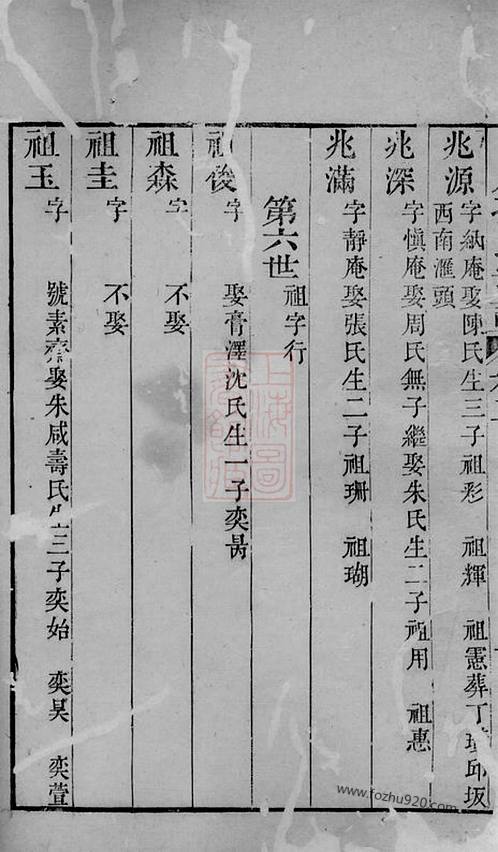 兆源 字納庵娶陳氏生三子祖彩 祖輝 祖憲葬丁 邱坂
西南滙頭
兆深 字慎庵娶周氏無子繼娶朱氏生二子祖用 祖惠
兆滿 字靜庵娶張氏生二子祖珊 祖瑚
第六世 祖字行
祖俊 字 娶膏澤沈氏生一子奕昺
祖森 字 不娶
祖圭 字 不娶
祖玉 字 號素齋娶朱咸壽氏生三子奕始 奕昊 奕萱
www.fozhu920.com